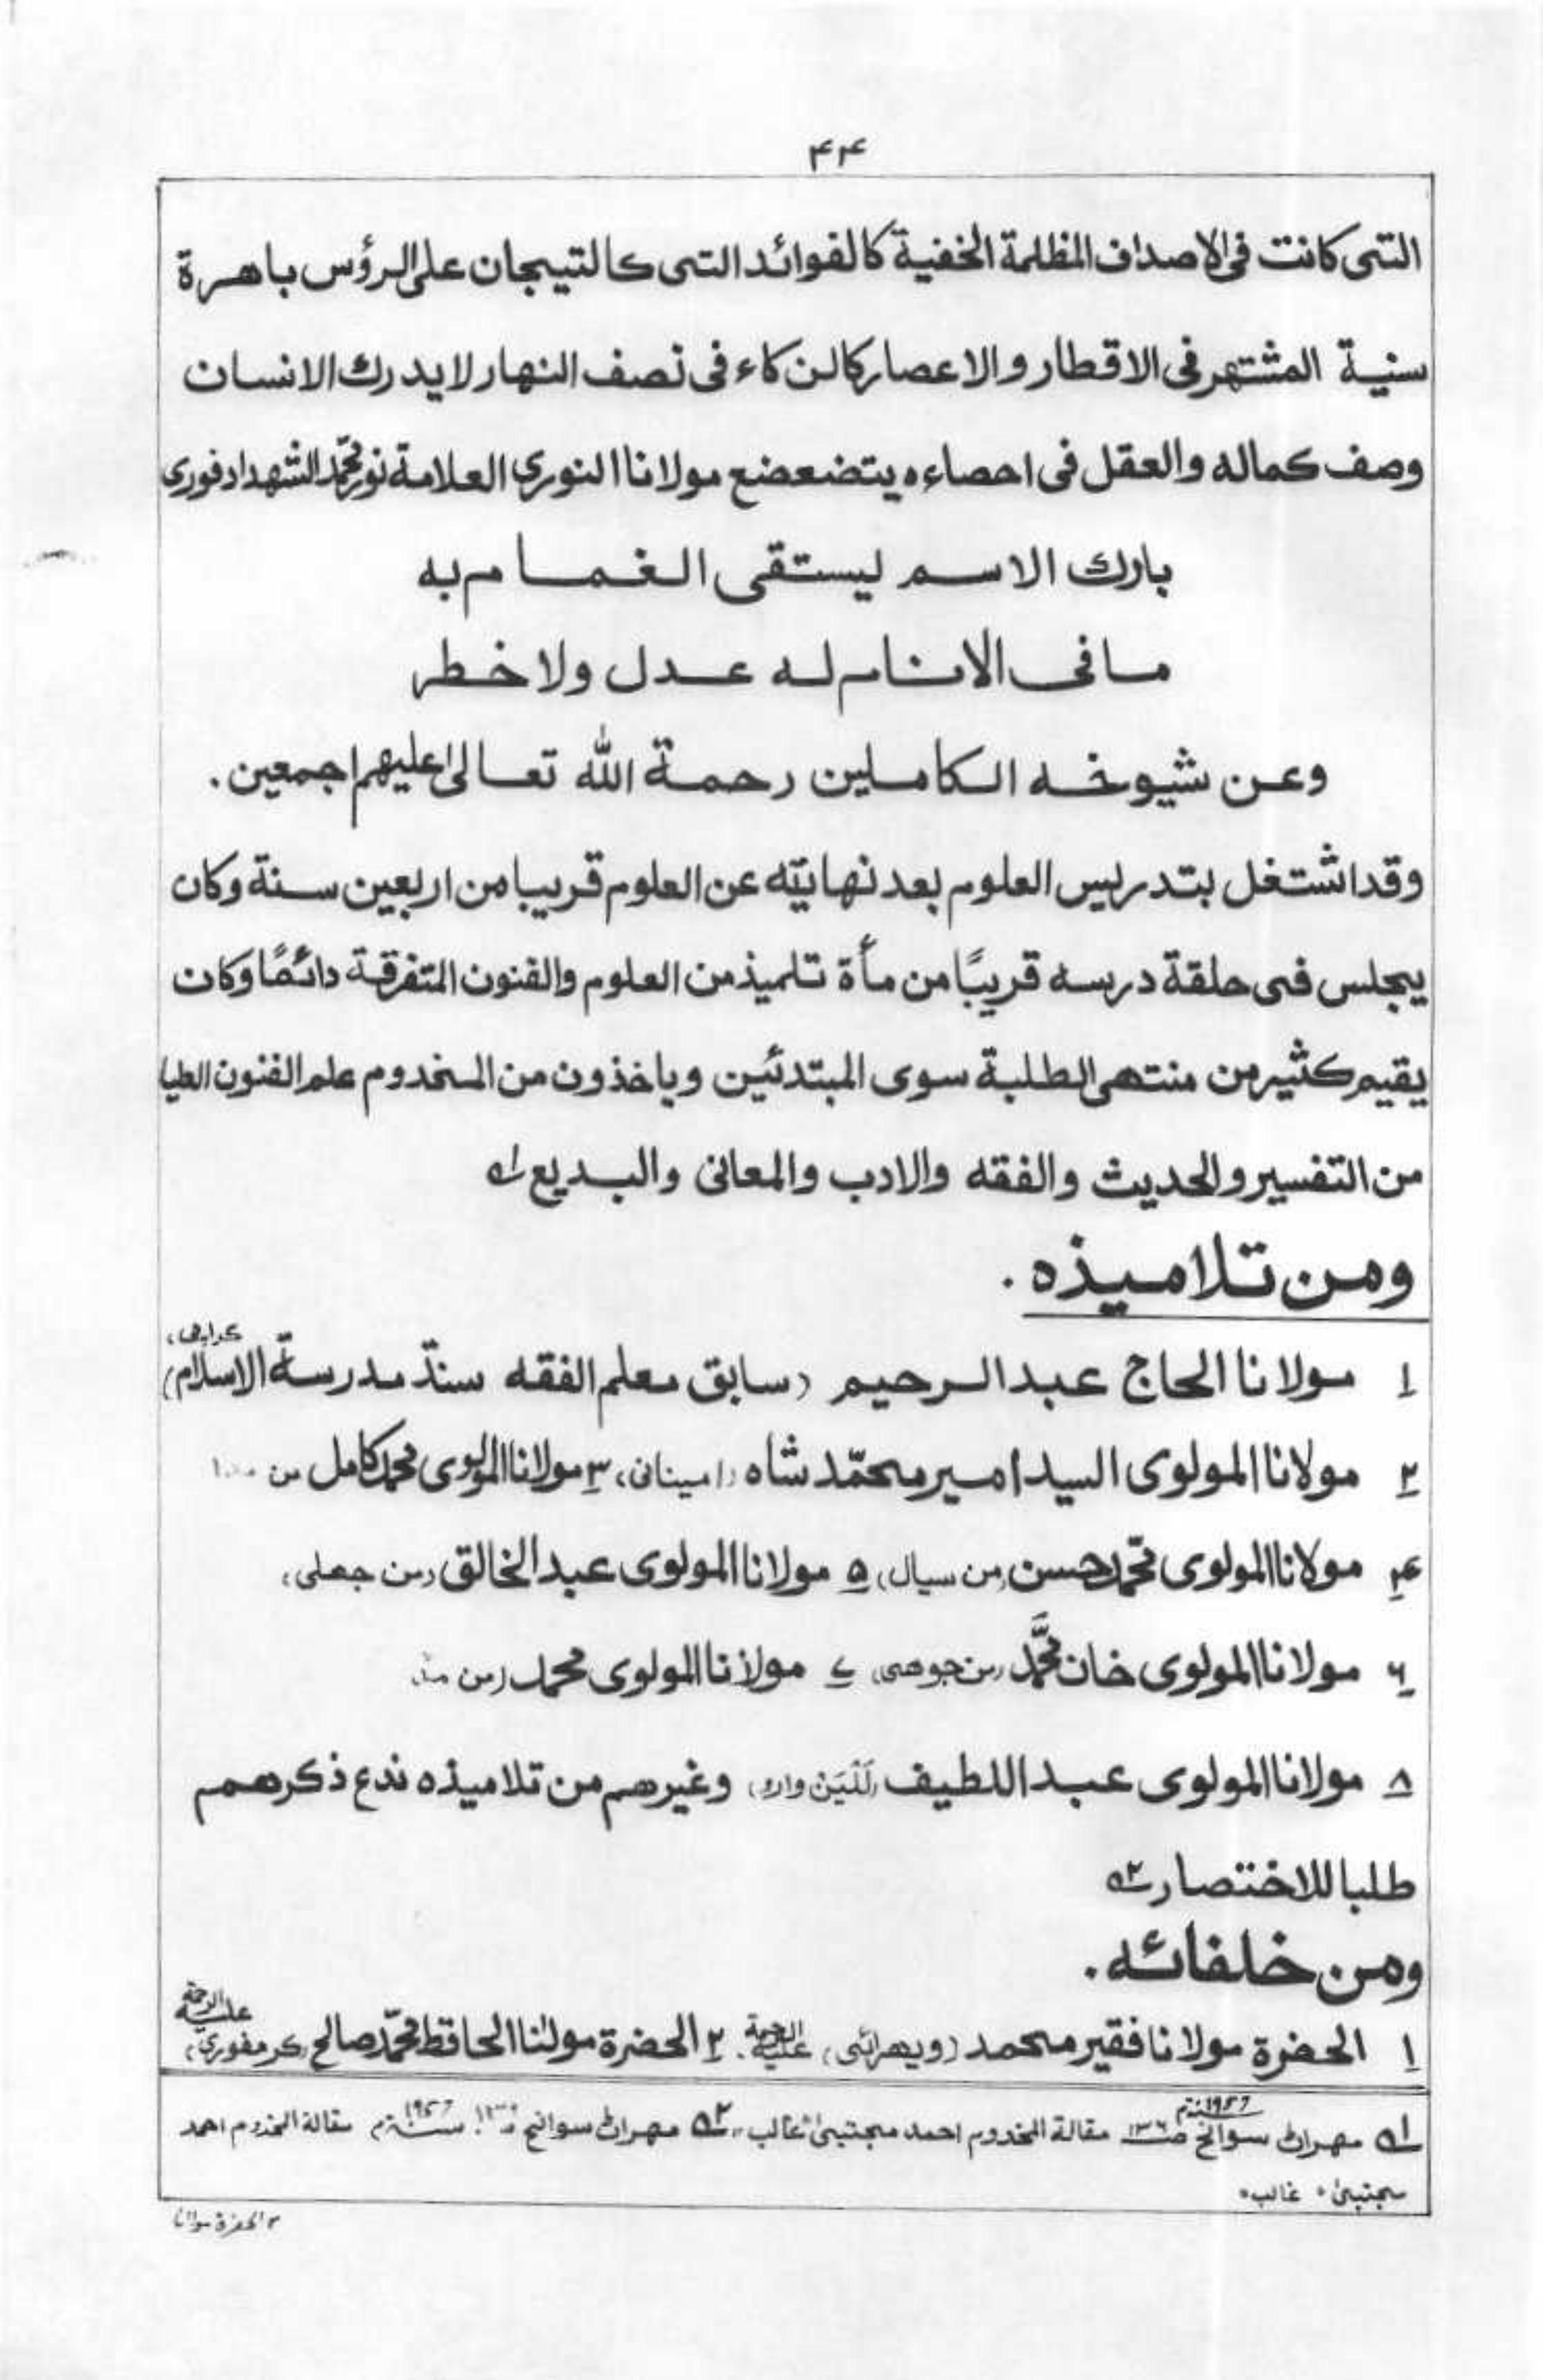 ۴۴
التی کانت فی الاصداف المظلمة الخفیة کالفوائد التی کالتیجان علی الرؤس باهرة
سنیة المشتهر فی الاقطار والاعصار کالذکاء فی نصف النهار لا یدرك الانسان
وصف کماله والعقل فی احصاءه یتضعضع مولانا النوری العلامة نور محمّد الشهدادفوری
بارك الاسم لیستقی الغمام به
ما فی الانام له عدل ولا خطر
وعن شیوخه الکاملین رحمة الله تعالیٰ علیهم اجمعین.
وقد اشتغل بتدریس العلوم بعد نهایته عن العلوم قریبا من اربعین سنة وکان
یجلس فی حلقة درسه قریبًا من مأة تلمیذ من العلوم والفنون المتفرقة دائمًا وکان
یقیم کثیر من منتهی الطلبة سوی المبتدئین ویاخذون من المخدوم علم الفنون العلیا
من التفسیر والحدیث والفقه والادب والمعانی والبدیع ۱ے
ومن تلامیذه.
۱ مولانا الحاج عبد الرحیم (سابق معلم الفقه سندّ مدرسة الاسلام) کراچی،
۲ مولانا المولوی السید امیر محمّد شاه (امینانی) ۳ مولانا المولوی محمد کامل من
۴ مولانا المولوی محمّد حسن (من سیال) ۵ مولانا المولوی عبد الخالق (من جعلی)
۶ مولانا المولوی خان محمَّد (من جوهی) ۷ مولانا المولوی محمد (من
۸ مولانا المولوی عبد اللطیف وغیرهم من تلامیذه ندع ذکرهم
طلبا للاختصار ۲ے
ومن خلفائه.
۱ الحضرة مولانا فقیر محمد (ویهرائی) علیه الرحمة. ۲ الحضرة مولٰنا الحافظ محمّد صالح علیه الرحمة
۱ے مهران سوانح ص ۱۳۶ مقالة المخدوم احمد مجتبیٰ "غالب" ۲ے مهران سوانح مقالة المخدوم احمد
مجتبیٰ "غالب"
۳ الحضرة مولانا